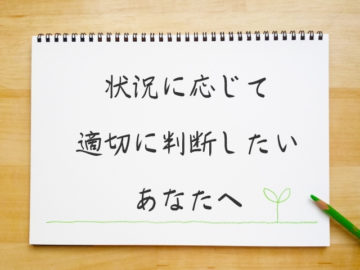 状況に応じて
適切に判断したい
あなたへ